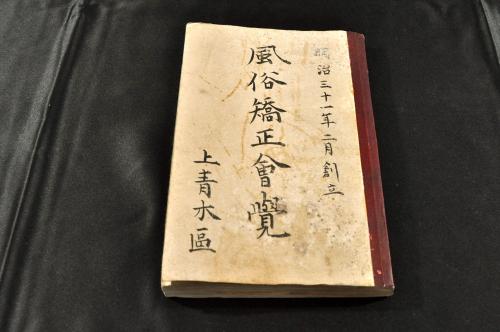 明治三十一年二月創立
風俗矯正會覺
上青木區